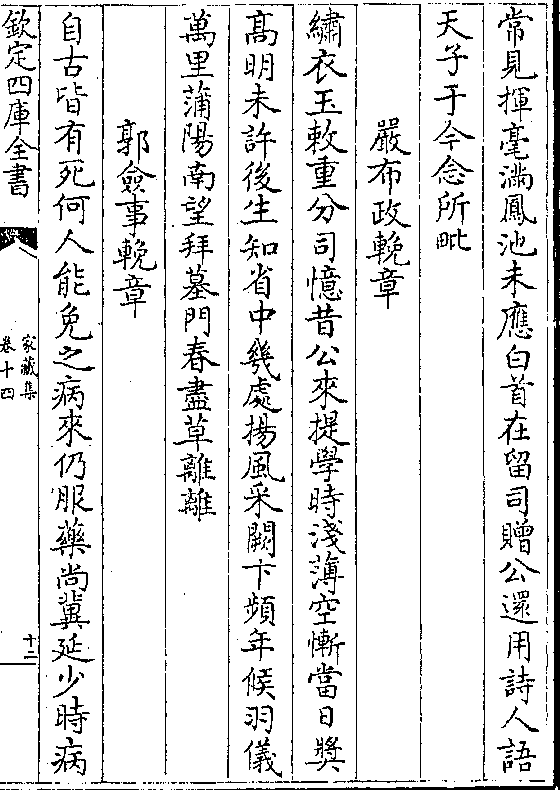 常見揮毫滿鳳池未應白首在留司贈公還用詩人語
天子于今念所毗
嚴布政輓章
繡衣玉敕重分司憶昔公來提學時淺薄空慚當日獎
髙明未許後生知省中幾處揚風采闕下頻年候羽儀
萬里蒲陽南望拜墓門春盡草離離
郭僉事輓章
自古皆有死何人能免之病來仍服藥尚冀延少時病
欽定四庫全書
家藏集
卷十四
十二